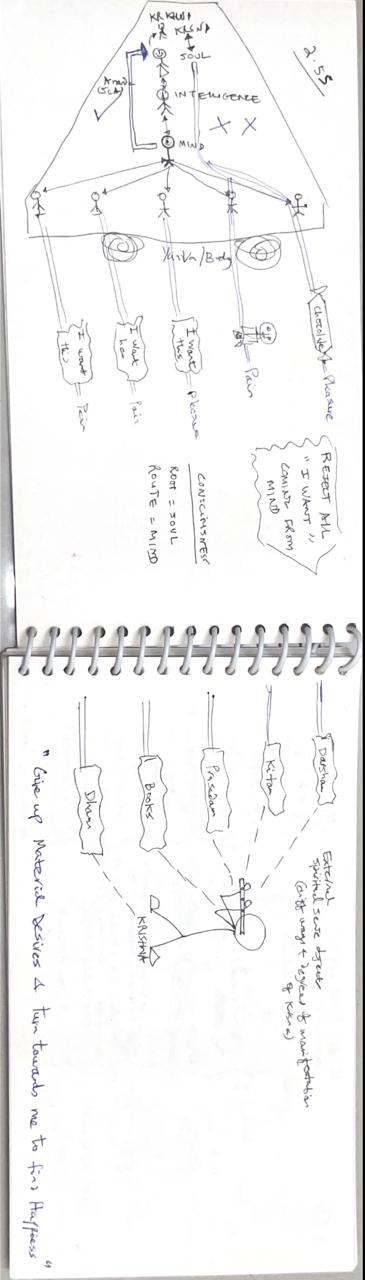 2.55
KRSNA
SOUL
INTELLIGENCE
MIND
X X
Body
Chocolate = Pleasure
= Pain
I want
this = Pleasure
I want
her = Pain
I want
this = Pain
REJECT ALL
"I WANT"
COMING FROM
MIND
CONSCIOUSNESS
ROOT = SOUL
ROUTE = MIND
External
spiritual sense objects
(diff ways & degrees of manifestation
of Krsna)
Darshan
Kirtan
Prasadam
Books
Dham
KRISHNA
"Give up Material Desires & turn towards me to find Happiness"